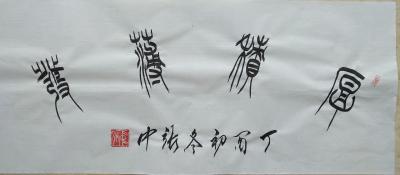 厚積薄發
丁酉初冬中